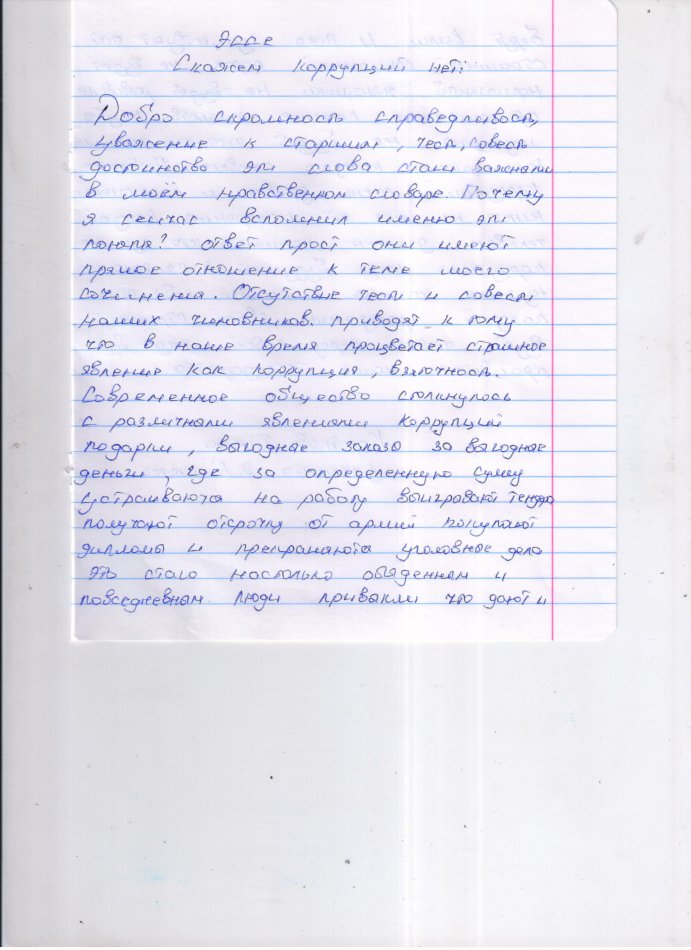 Эссе
Скажем коррупций нет!
Добро скромность справедливость,
уважение к старшим, честь, совесть
достоинство эти слова стали важнами
в моём нравственном словаре. Почему
я сейчас вспомнил именно эти
понятия? ответ прост они имеют
прямое отношение к теме моего
сочинения. Отсутствие чести и совести
наших чиновников. приводят к тому
что в наше время процветает страшное
явление как коррупция, взяточность.
Современное общество столкнулось
с различнами явлениями коррупций
подарки, выгоднае заказа за выгоднае
деньги, где за определенную сумму
устраиваются на работу выигравают тендера
получают отсрочку от армий покупают
дипломы и прекращаются уголовнае дела
Это стало настолько обыденнам и
повседневнам. Люди привыкли что дают и